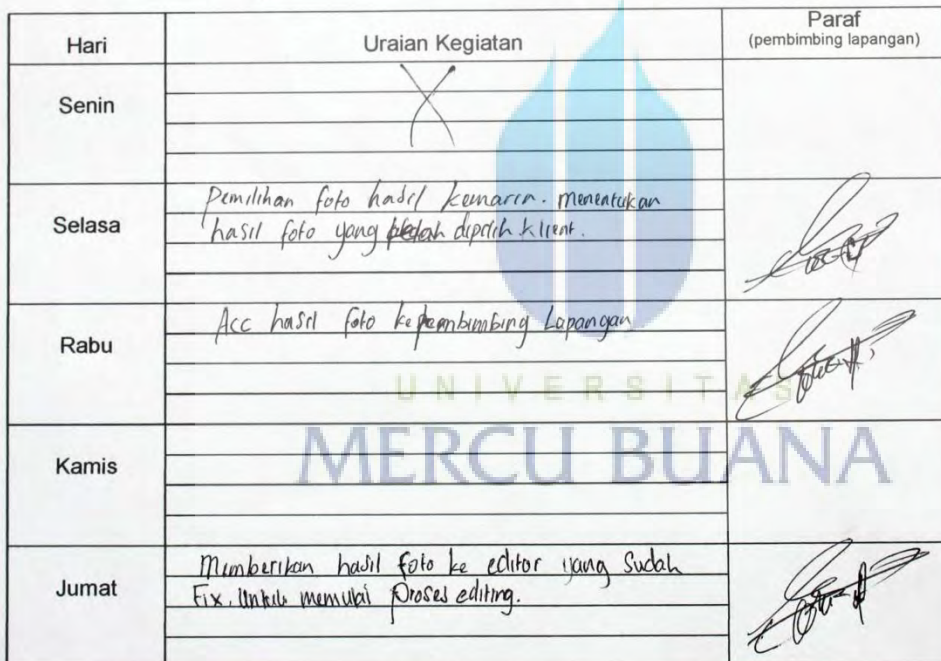 Hari Uraian Kegiatan Paraf
(pembimbing lapangan)
Senin X
Selasa
Pemilihan foto hasil kemarin. Menentukan
hasil foto yang dipilih klient.
Rabu
Acc hasil foto ke pembimbing Lapangan
UNIVERSITAS
MERCU BUANA
Kamis
Jumat
Memberikan hasil foto ke editor yang sudah
Fix. Untuk memulai proses editing.